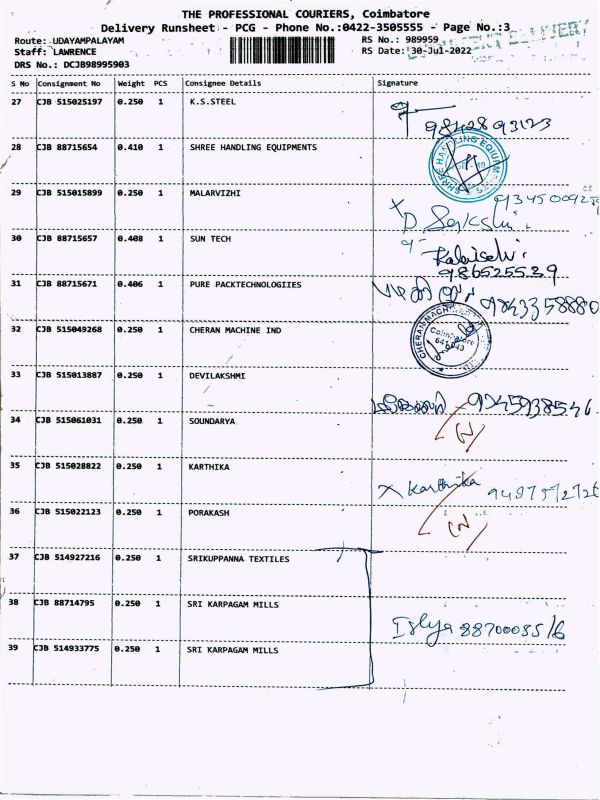 THE PROFESSIONAL COURIERS, Coimbatore
Delivery Runsheet - PCG - Phone No.:0422-3505555 - Page No.:3
Route: UDAYAMPALAYAM RS No.: 989959
Staff: LAWRENCE RS Date: 30-Jul-2022
DRS No.: DCJB98995903
S No Consignment No Weight PCS Consignee Details Signature
27 CJB 515025197 0.250 1 K.S.STEEL
9842893123
28 CJB 88715654 0.410 1 SHREE HANDLING EQUIPMENTS
SHREE HANDLING EQUIPMENTS
29 CJB 515015899 0.250 1 MALARVIZHI
30 CJB 88715657 0.408 1 SUN TECH
Kalaiselvi
986525539
31 CJB 88715671 0.406 1 PURE PACKTECHNOLOGIIES
9843358880
32 CJB 515049268 0.250 1 CHERAN MACHINE IND
Coimbatore
33 CJB 515013887 0.250 1 DEVILAKSHMI
9345938546
34 CJB 515061031 0.250 1 SOUNDARYA
35 CJB 515028822 0.250 1 KARTHIKA
x Karthika
36 CJB 515022123 0.250 1 PORAKASH
37 CJB 514927216 0.250 1 SRIKUPPANNA TEXTILES
38 CJB 88714795 0.250 1 SRI KARPAGAM MILLS
39 CJB 514933775 0.250 1 SRI KARPAGAM MILLS